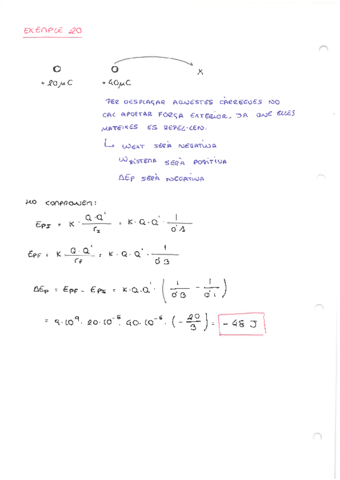 EXEMPLE 20
+20μC +40μC x
PER DESPLAÇAR AQUESTES CÀRREGUES NO
CAL APORTAR FORÇA EXTERIOR, JA QUE ELLES
MATEIXES ES REPEL·LEN.
↳ WEXT SERÀ NEGATIVA
WSISTEMA SERÀ POSITIVA
ΔEP SERÀ NEGATIVA
HO COMPROVEM:
EPI = K · Q·Q' / rI = K · Q · Q' · 1 / 0'1
EPF = K · Q·Q' / rF = K · Q · Q' · 1 / 0'3
ΔEP = EPF - EPI = K · Q · Q' · ( 1 / 0'3 - 1 / 0'1 )
= 9·10⁹ · 20·10⁻⁶ · 40·10⁻⁶ · ( - 20 / 3 ) = - 48 J